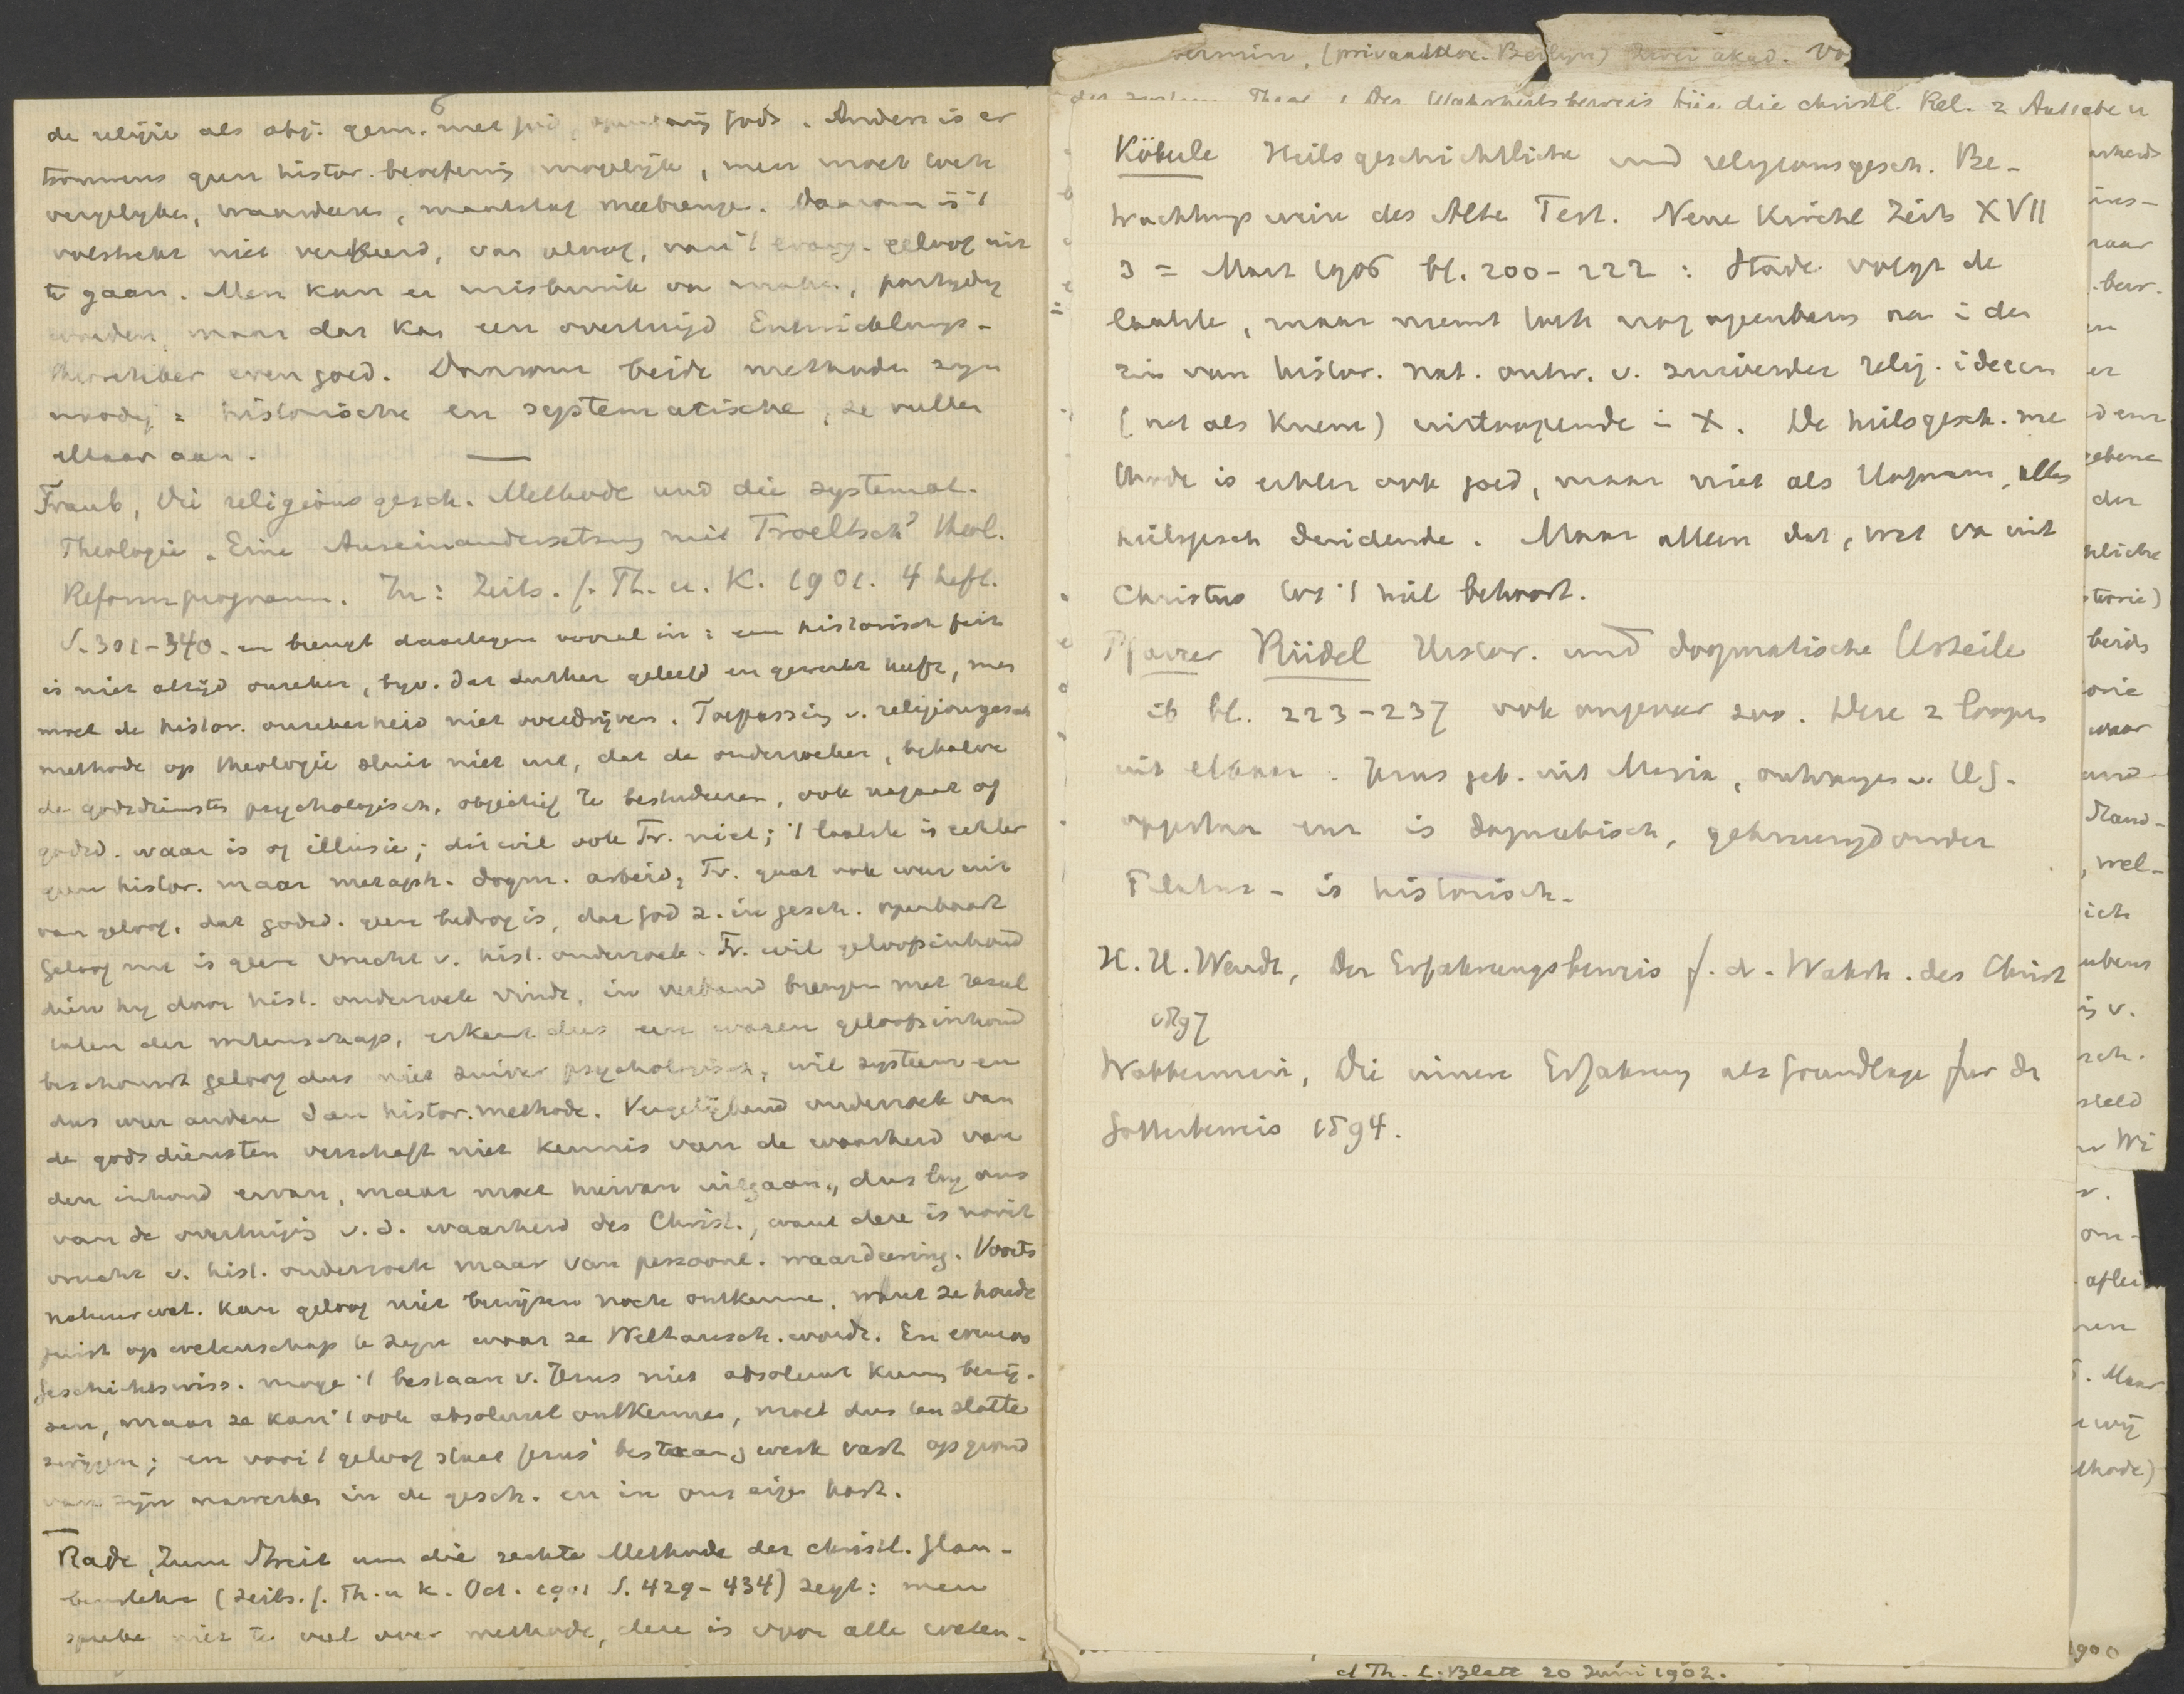 6
de religie als obj. gem. met God, openbaring Gods. Anders is er
trouwens geen histor. beoefening mogelijk, men moet toch
vergelyken, waardeeren, maatstaf meebrengen. Daarom is 't
volstrekt niet verkeerd, van geloof, van 't evang. geloof uit
te gaan. Men kan er misbruik van maken, partydig
worden, maar dat kan een overtuigd Entwicklungs-
theoretiker even goed. Daarom beide methoden zyn
noodig = historische en systematische, ze vullen
elkaar aan.
Traub, Die religionsgesch. Methode und die systemat.
Theologie. Eine Auseinandersetzung mit Troeltsch' theol.
Reformprogramm. In: Zeits. f. Th. u. K. 1901. 4 heft.
S. 301-340. en brengt daartegen vooral in: een historisch feit
is niet altijd onzeker, byv. dat Luther geleefd en gewerkt heeft, men
moet de histor. onzekerheid niet overdrijven. Toepassing v. religionsgesch
methode op theologie sluit niet uit, dat de onderzoeker, behalve
de godsdiensten psychologisch, objectief te bestudeeren, ook nagaat of
godsd. waar is of illusie; dit wil ook Tr. niet; 't laatste is echter
geen histor. maar metaph. dogm. arbeid, Tr. gaat ook weer uit
van geloof, dat godsd. geen bedrog is, dat God z. in gesch. openbaart
Geloof nu is geen vrucht v. hist. onderzoek. Tr. wil geloofsinhoud
dien hy door hist. onderzoek vindt, in verband brengen met resul
taten der wetenschap, erkent dus een waren geloofsinhoud
beschouwt geloof dus niet zuiver psychologisch, wil systeem en
dus weer andere dan histor. methode. Vergelijkend onderzoek van
de godsdiensten verschaft niet kennis van de waarheid van
den inhoud ervan, maar moet hiervan uitgaan, dus by ons
van de overtuiging v. d. waarheid des Christ., want deze is nooit
vrucht v. hist. onderzoek maar van persoonl. waardeering. Voorts
natuurwet. kan geloof niet bewijzen noch ontkennen, want ze houdt
juist op wetenschap te zyn waar ze Weltansch. wordt. En evenzoo
Geschichtswiss. moge 't bestaan v. Jezus niet absoluut kunnen bewij-
zen, maar ze kan 't ook absoluut ontkennen, moet dus ten slotte
zwijgen; en voor 't geloof staat Jezus' bestaan & werk vast op grond
van zijn nawerken in de gesch. en in ons eigen hart.
Rade, Zum Streit um die rechte Methode der christl. Glau-
benslehre (Zeits. f. Th. u K. Oct. 1901 S. 429-434) zegt: men
spreke niet te veel over methode, deze is voor alle weten-
(privaatdoc. Berlijn) Zwei akad. Vo
Theol. Der Wahrheitsbeweis für die christl. Rel. 2 Aufsätze
Köberle Heilsgeschichtliche und religionsgesch. Be-
trachtungsweise des Alten Test. Neue Kirchl Zeits XVII
3 = Maart 1906 bl. 200-222: Stade volgt de
laatste, maar neemt toch nog openbaring aan in den
zin van histor. nat. ontw. v. zuiverder relig. ideeen
(net als Kuenen) uitloopende in X. De heilsgesch. me
thode is echter ook goed, maar niet als Dogmen, alles
heilsgesch duidende. Maar alleen dat, wat van uit
Christus tot 't heil behoort.
Pfarrer Rüdel Histor. und dogmatische Urteile
ib bl. 223-237 ook ongeveer zoo. Deze 2 loopen
uit elkaar. Jezus geb. uit Maria, ontvangen v. H.G.
opgestaan enz is dogmatisch, gekruisigd onder
Pilatus - is historisch.
H. H. Wendt, Der Erfahrungsbeweis f. d. Wahrh. des Christ
1897
Wobbermin, Die innere Erfahrung als Grundlage für den
Gottesbeweis 1894.
d Th. L. Blatt 20 Juni 1902.
1900